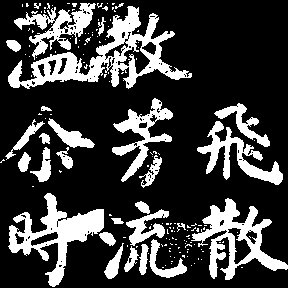 溢散
尒芳飛
時流散